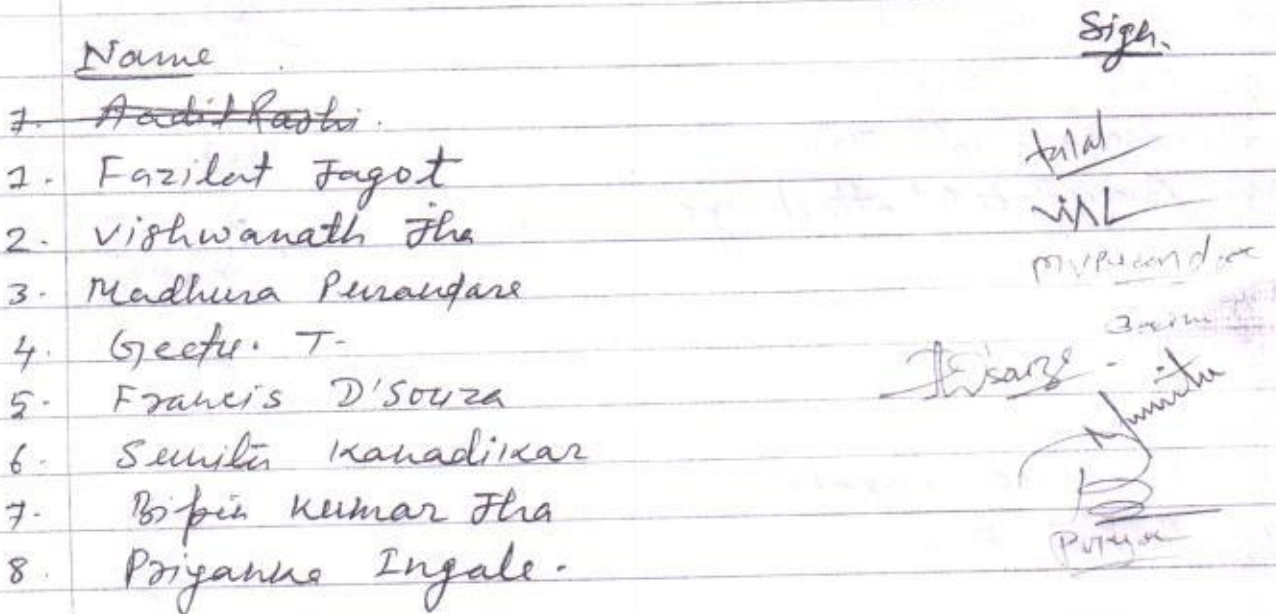 Name Sign.
1. Aadil Rashi.
1. Fazilat Jagot
2. Vishwanath Jha
3. Madhura Purandare MVPurandare
4. Geetu. T-
5. Francis D'Souza
6. Sunita Kanadikar
7. Bipin Kumar Jha
8. Priyanka Ingale.